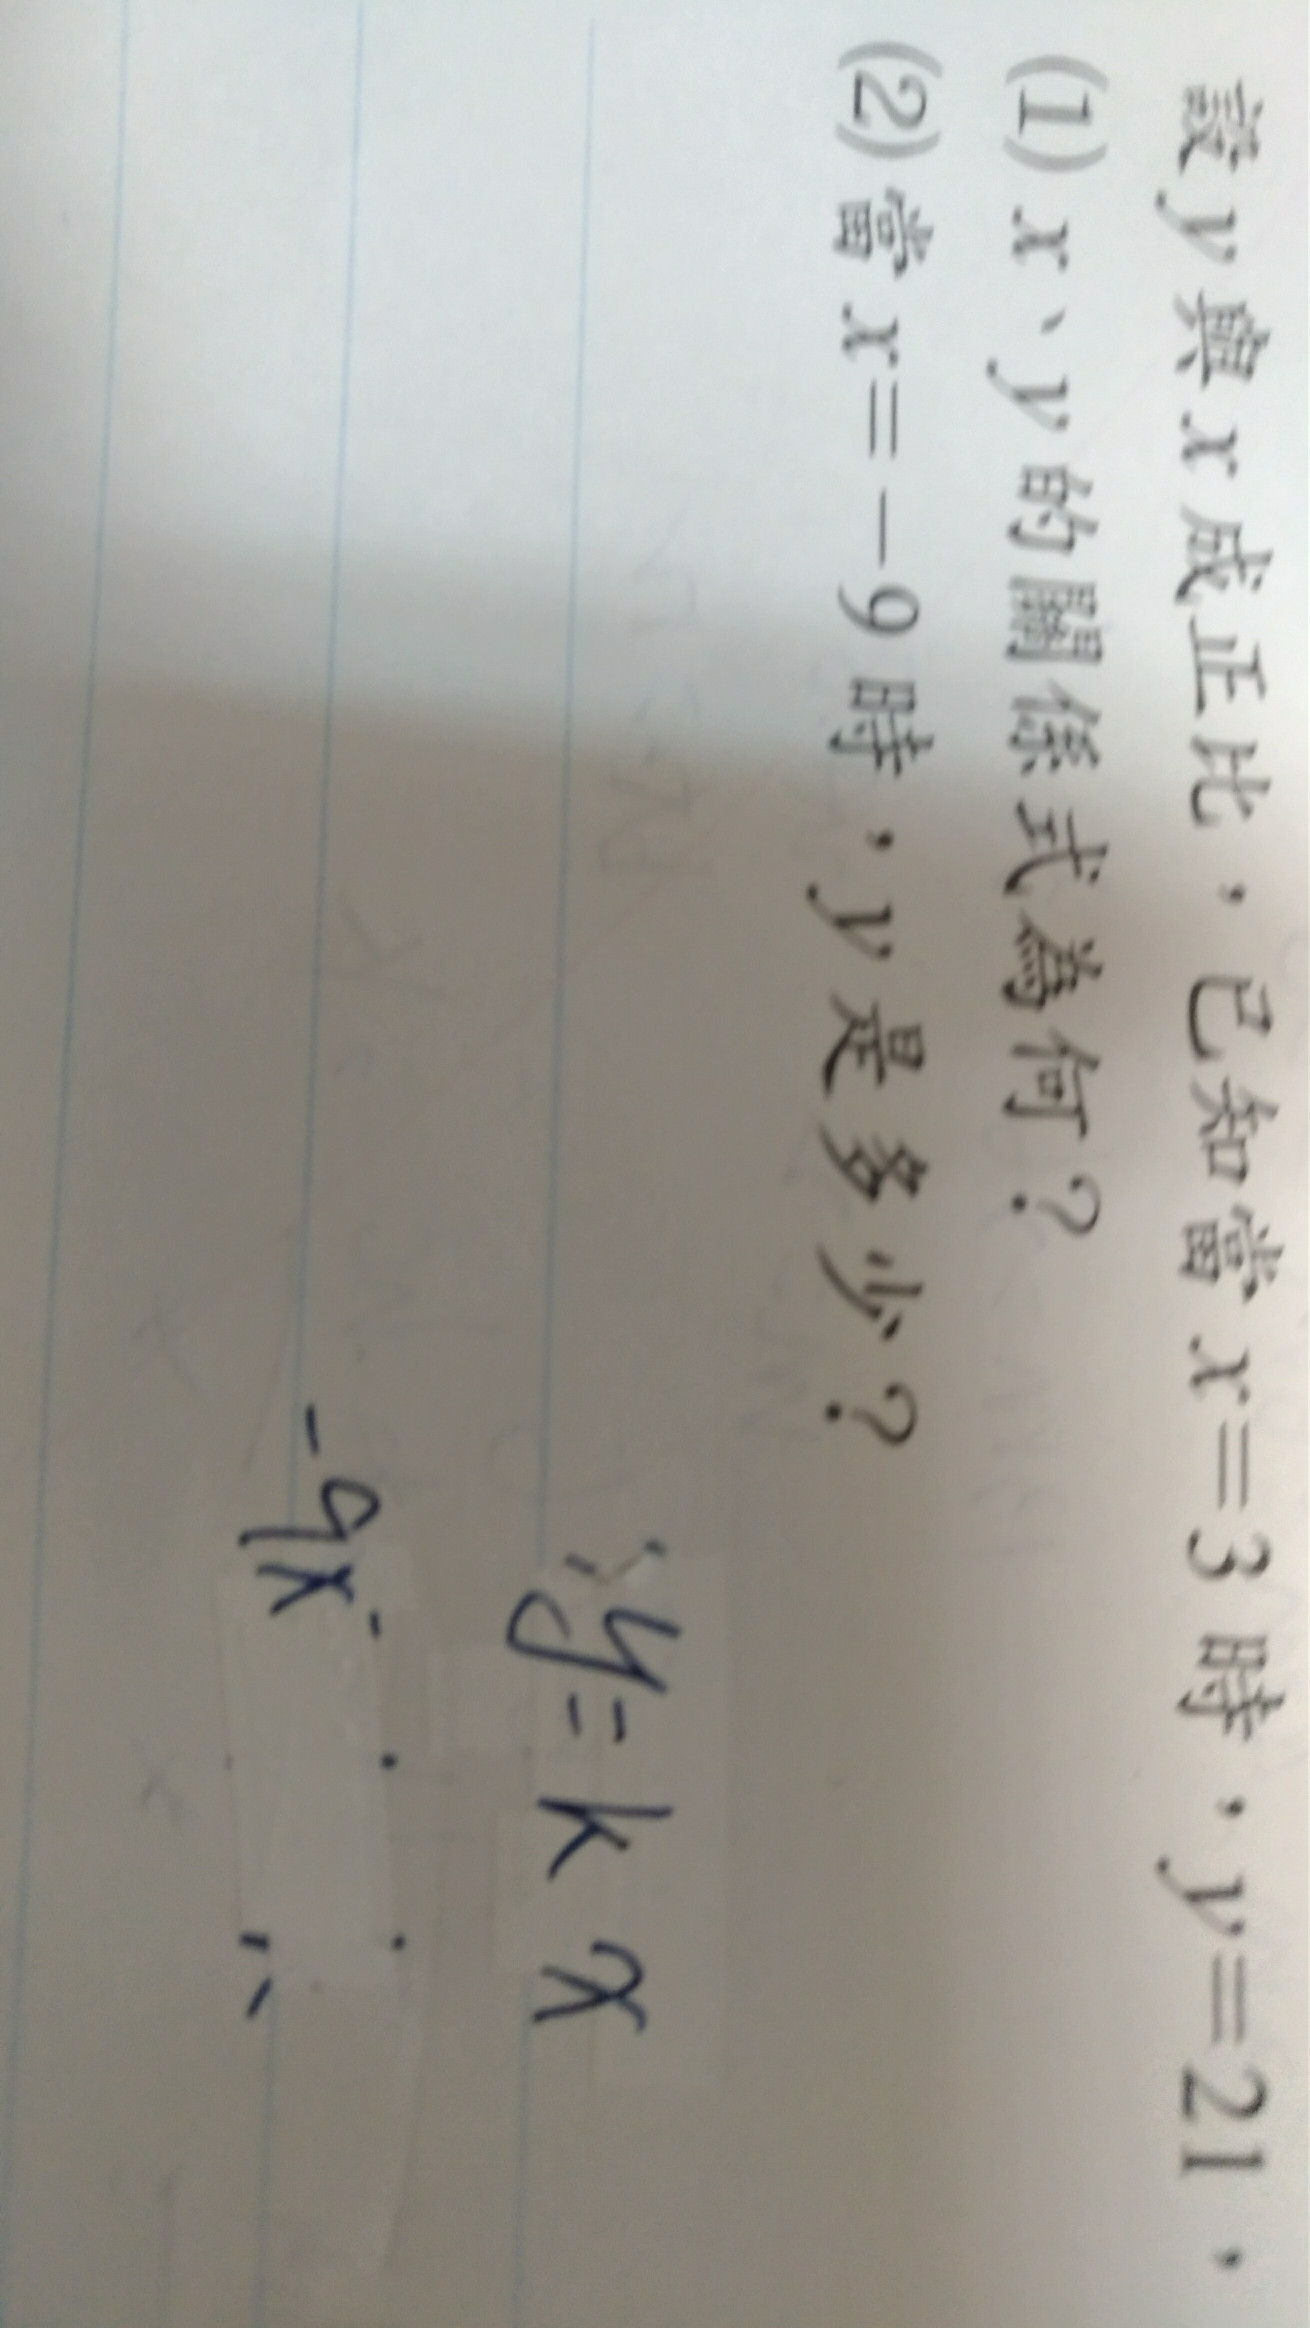 設y與x成正比,已知當x=3時,y=21,
(1) x、y的關係式為何?
(2)當x=-9時,y是多少?
y=kx
-9x